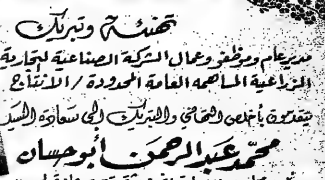 تهنئة وتبريك
مدير عام وموظفو وعمال الشركة الصناعية التجارية
الزراعية المساهمة العامة المحدودة / الانتاج
يتقدمون بأخلص التهاني والتبريك الى سعادة السيد
محمد عبد الرحمن أبو حسان